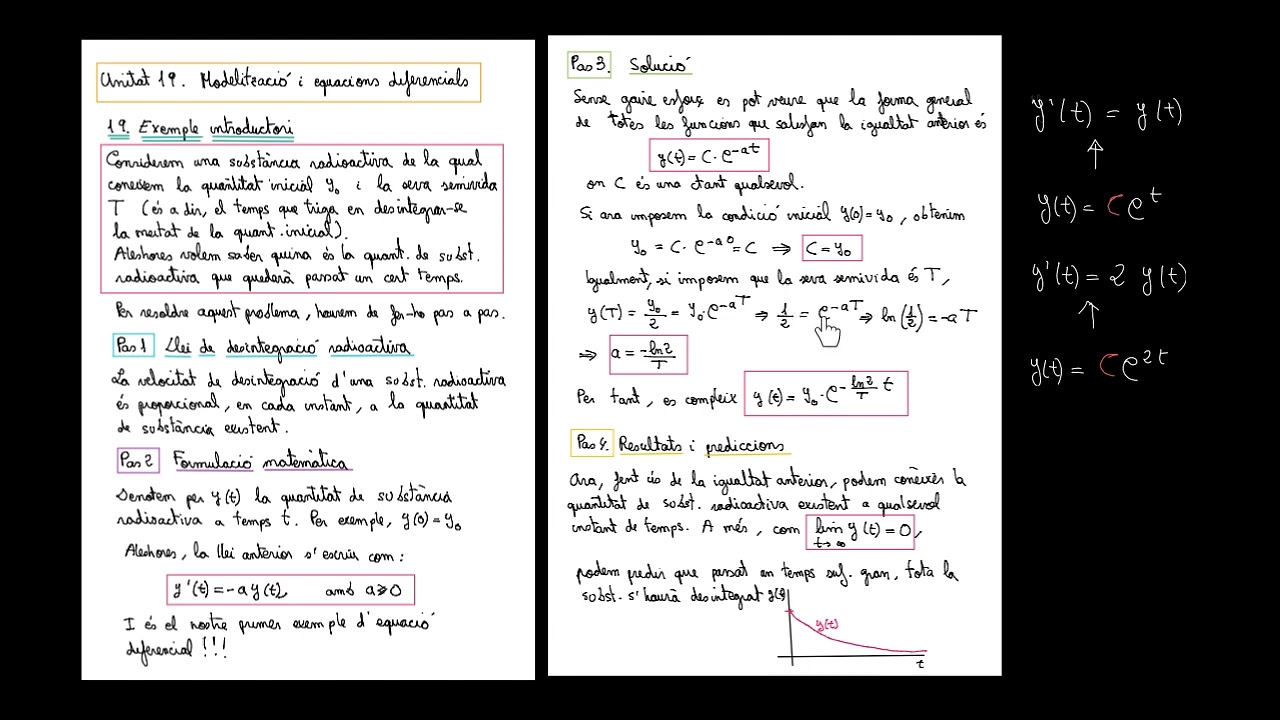 Unitat 19. Modelització i equacions diferencials
19. Exemple introductori
Considerem una substància radioactiva de la qual
coneixem la quantitat inicial y₀ i la seva semivida
T (és a dir, el temps que triga en desintegrar-se
la meitat de la quant. inicial).
Aleshores volem saber quina és la quant. de subst.
radioactiva que quedarà passat un cert temps.
Per resoldre aquest problema, haurem de fer-ho pas a pas.
Pas 1 Llei de desintegració radioactiva
La velocitat de desintegració d'una subst. radioactiva
és proporcional, en cada instant, a la quantitat
de substància existent.
Pas 2 Formulació matemàtica
Denotem per y(t) la quantitat de substància
radioactiva a temps t. Per exemple, y(0) = y₀
Aleshores, la llei anterior s'escriu com:
y'(t) = -a y(t), amb a ≥ 0
I és el nostre primer exemple d'equació
diferencial !!!
Pas 3. Solució
Sense gaire esforç es pot veure que la forma general
de totes les funcions que satisfan la igualtat anterior és
y(t) = C · e^{-at}
on C és una ctant qualsevol.
Si ara imposem la condició inicial y(0) = y₀, obtenim
y₀ = C · e^{-a0} = C ⇒ C = y₀
Igualment, si imposem que la seva semivida és T,
y(T) = y₀/2 = y₀ · e^{-aT} ⇒ 1/2 = e^{-aT} ⇒ ln(1/2) = -aT
⇒ a = -ln2/T
Per tant, es compleix y(t) = y₀ · e^{-ln2/T t}
Pas 4. Resultats i prediccions
Ara, fent ús de la igualtat anterior, podem conèixer la
quantitat de subst. radioactiva existent a qualsevol
instant de temps. A més, com lim y(t) = 0,
t→∞
podem predir que passat un temps suf. gran, tota la
subst. s'haurà desintegrat
y(t)
y(t)
t
y'(t) = y(t)
↑
y(t) = C e^t
y'(t) = 2 y(t)
↑
y(t) = C e^{2t}